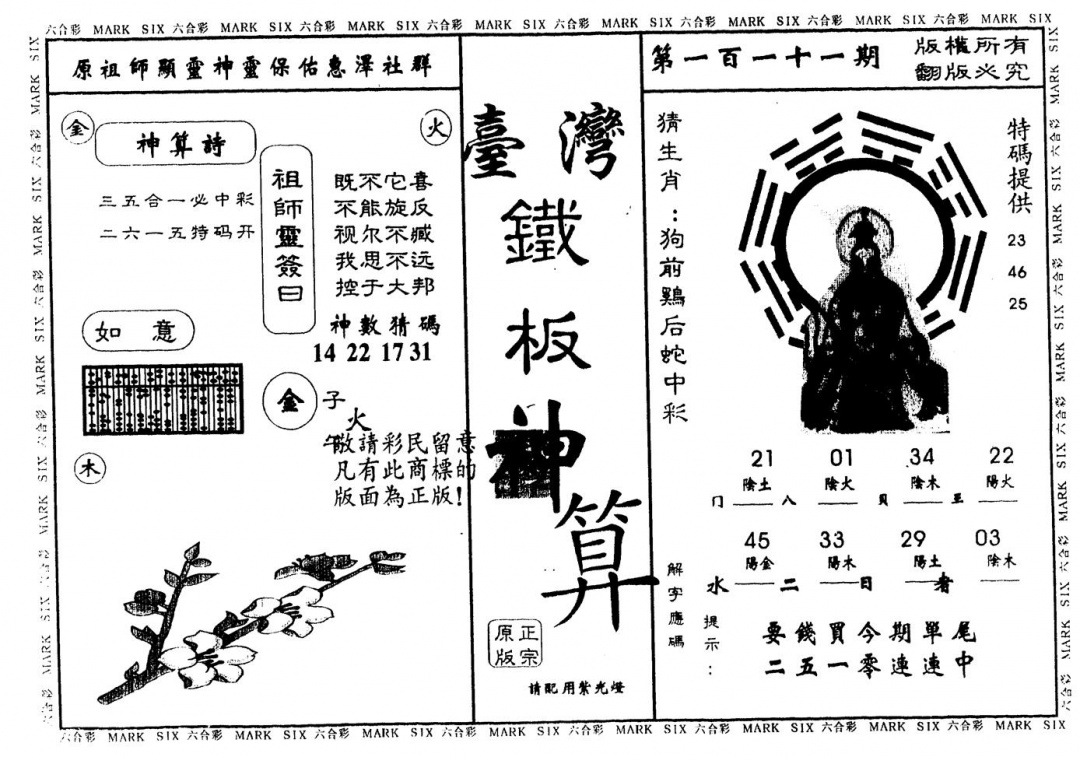 六合彩 MARK SIX 六合彩 MARK SIX 六合彩 MARK SIX 六合彩 MARK SIX 六合彩 MARK SIX 六合彩 MARK SIX 六合彩 MARK SIX 六合彩 MARK SIX 六合彩 MARK SIX
原祖師顯靈神靈保佑惠澤社群
金
火
神算詩
三五合一必中彩
二六一五特码开
祖師靈簽曰
既不它喜
不能旋反
视尔不臧
我思不远
控于大邦
神數猜碼
14 22 17 31
如意
金 子
火
午
敬請彩民留意
凡有此商標的
版面為正版!
木
臺灣
鐵
板
神
算
正宗
原版
請配用紫光燈
第一百一十一期
版權所有
翻版必究
猜生肖:狗前鷄后蛇中彩
特碼提供
23
46
25
21 01 34 22
陰土 陰火 陰木 陽火
门 八 貝 王
45 33 29 03
陽金 陽木 陽土 陰木
水 二 日 者
解字應碼
提示:
要錢買今期單尾
二五一零連連中
六合彩 MARK SIX 六合彩 MARK SIX 六合彩 MARK SIX 六合彩 MARK SIX 六合彩 MARK SIX 六合彩 MARK SIX 六合彩 MARK SIX 六合彩 MARK SIX 六合彩 MARK SIX